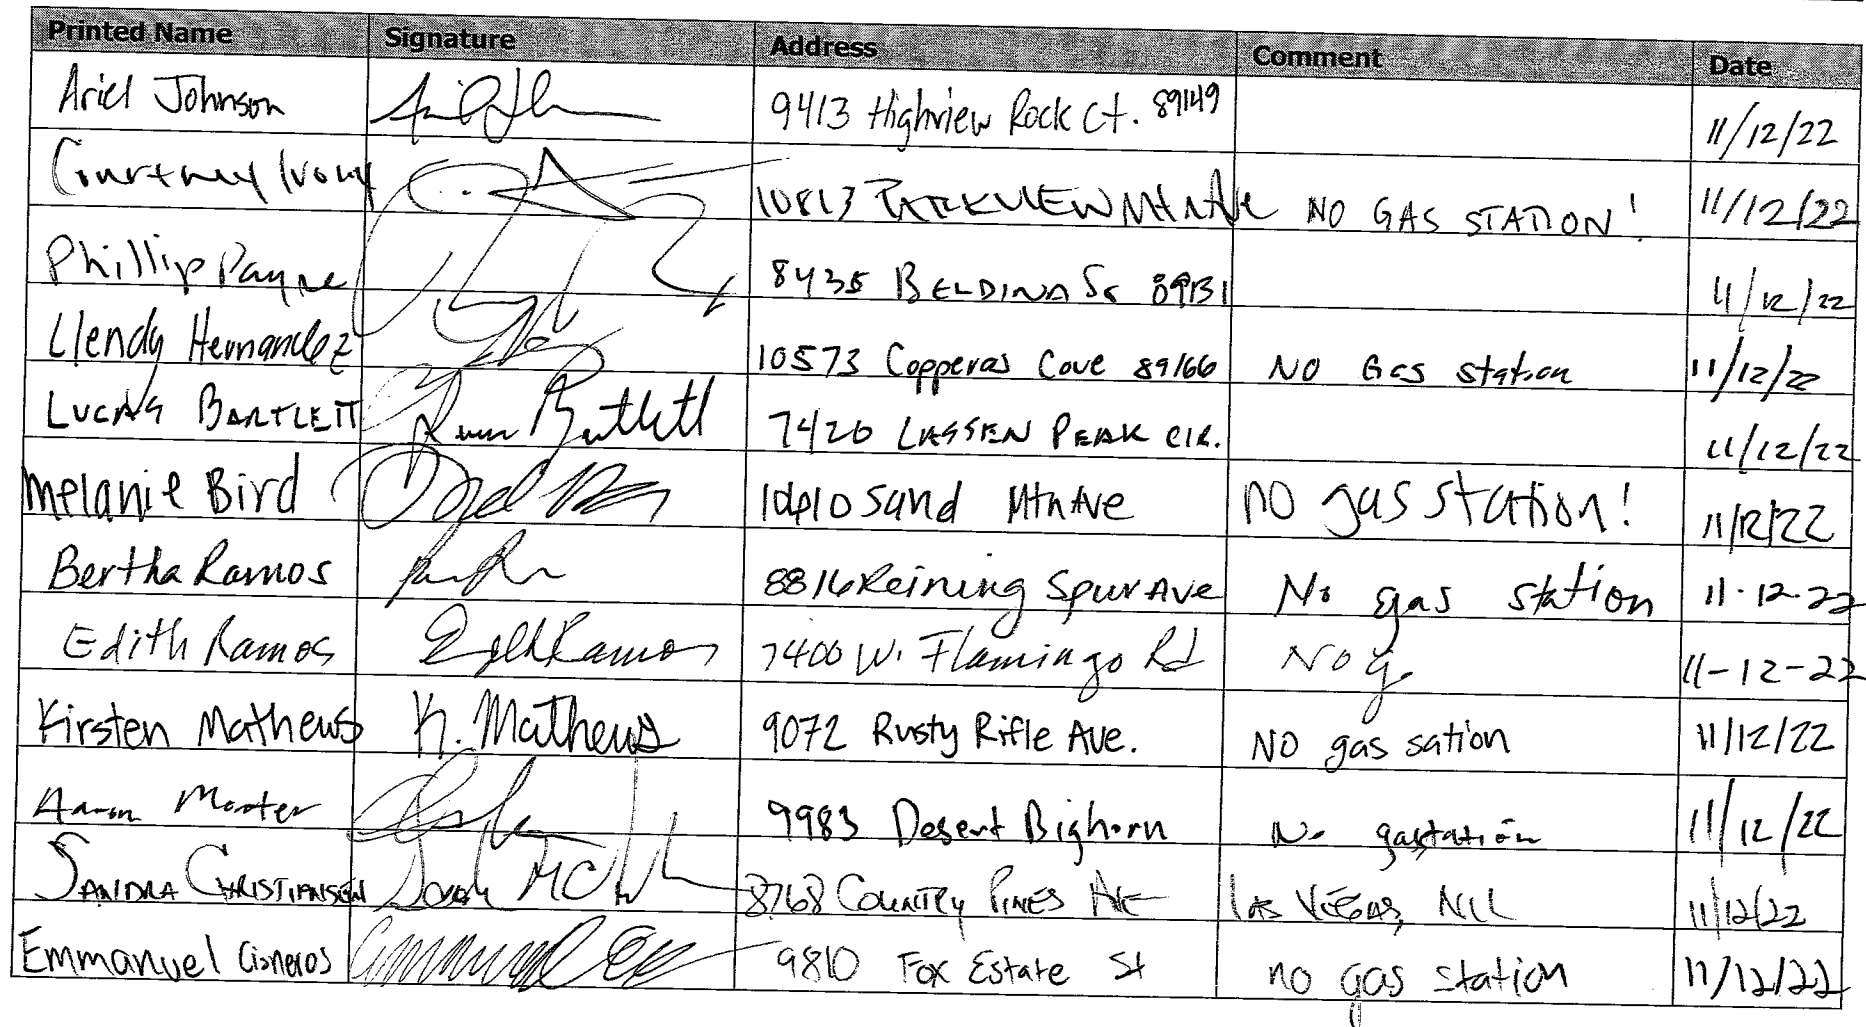 Printed Name Signature Address Comment Date
Ariel Johnson 9413 Highview Rock Ct. 89149 11/12/22
Courtney Ivory 10813 PARKVIEW Mtn Ave NO GAS STATION! 11/12/22
Phillip Payne 8435 BELDINA St 89131 11/12/22
Llendy Hernandez 10573 Copperas Cove 89166 NO Gas station 11/12/22
LUCAS BARTLETT Bartlett 7420 LASSEN PEAK CIR. 11/12/22
Melanie Bird Sand Mtn Ave NO gas station! 11/12/22
Bertha Ramos 8816 Reining Spur Ave No gas station 11-12-22
Edith Ramos Edith Ramos 7400 W. Flamingo Rd No g. 11-12-22
Kirsten Mathews K. Mathews 9072 Rusty Rifle Ave. NO gas sation 11/12/22
Aaron 9983 Desert Bighorn No gastation 11/12/22
SANDRA CHRISTIANSEN 8768 COUNTRY PINES AVE LAS VEGAS, NV 11/12/22
Emmanuel Cisneros 9810 Fox Estate St no gas station 11/12/22